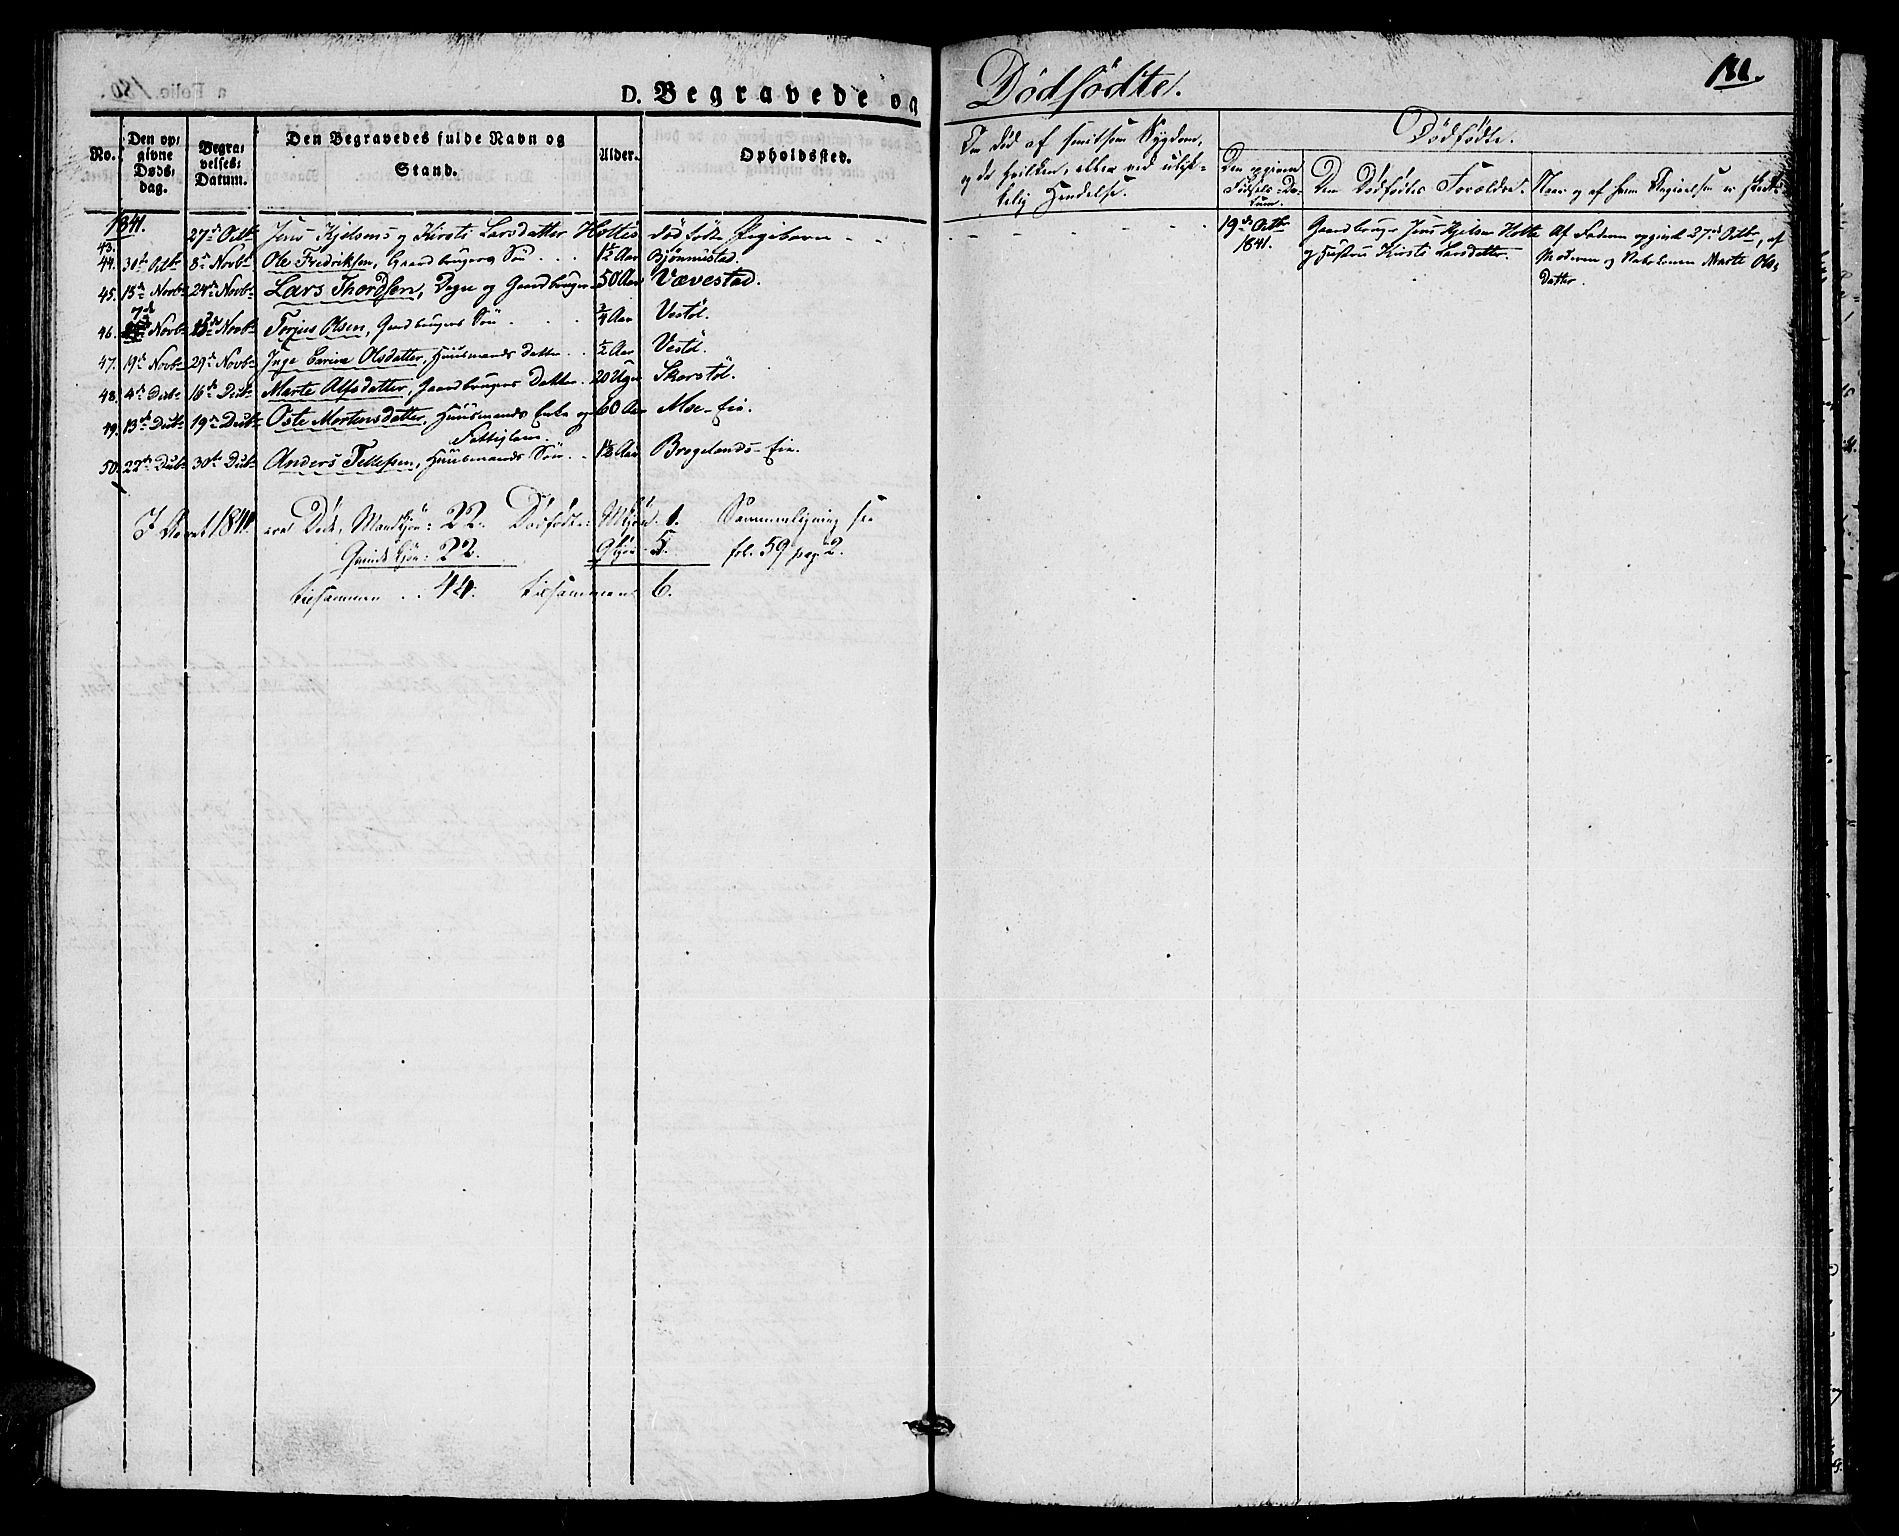 D. Begravede og
Dödfödte.
181.
No.
Den op-
givne
Døds-
dag.
Begra-
velses-
Datum.
Den Begravedes fulde Navn og
Stand.
Alder.
Opholdssted.
Om død af smitsom Sygdom,
og da hvilken, eller ved ulyk-
kelig Hændelse.
Dödfödte.
Den opgivne
Födsels-Da-
tum.
Den Dödfödtes Forældre.
Naar og af hvem Angivelsen er skeet.
1841.
43. 27de Octbr Jens Kjelsens og Kirsti Larsdatter Holtes dödfödte Pigebarn
19de Octbr
1841.
Gaardbruger Jens Kjelsen Holte
og Hustru Kirsti Larsdatter.
Af Faderen opgivet 27de Octbr, af
Moderen og Naboekonen Marte Ols-
datter.
44. 31te Octbr 8de Novbr Ole Fredriksen, Gaardbrugers Sön 1½ Aar Bjönnested.
45. 15de Novbr 24de Novbr Lars Thordsen, Degn og Gaardbruger 50 Aar Vævestad.
7de
46. Novbr 15de Novbr Torjus Olsen, Gaardbrugers Sön ¾ Aar Vestöl.
47. 19de Novbr 29de Novbr Inge Carine Olsdatter, Huusmands Datter ½ Aar Vestöl.
48. 4de Decbr 16de Decbr Marte Alfsdatter, Gaardbrugers Datter 20 Uger Skorstöl.
49. 13de Decbr 19de Decbr Oste Mortensdatter, Huusmands Enke og 60 Aar Moe-Eie.
Fattiglem.
50. 22de Decbr 30te Decbr Anders Tellefsen, Huusmands Sön 1½ Aar Brogelands-Eie.
I Aaret 1841 ere Döde, Mandkjön: 22. Dödfödte: Mkjön 1. Sammenligning see
Qvindekjön: 22. Qkjön 5. fol. 59 pag. 2.
tilsammen 44. tilsammen 6.